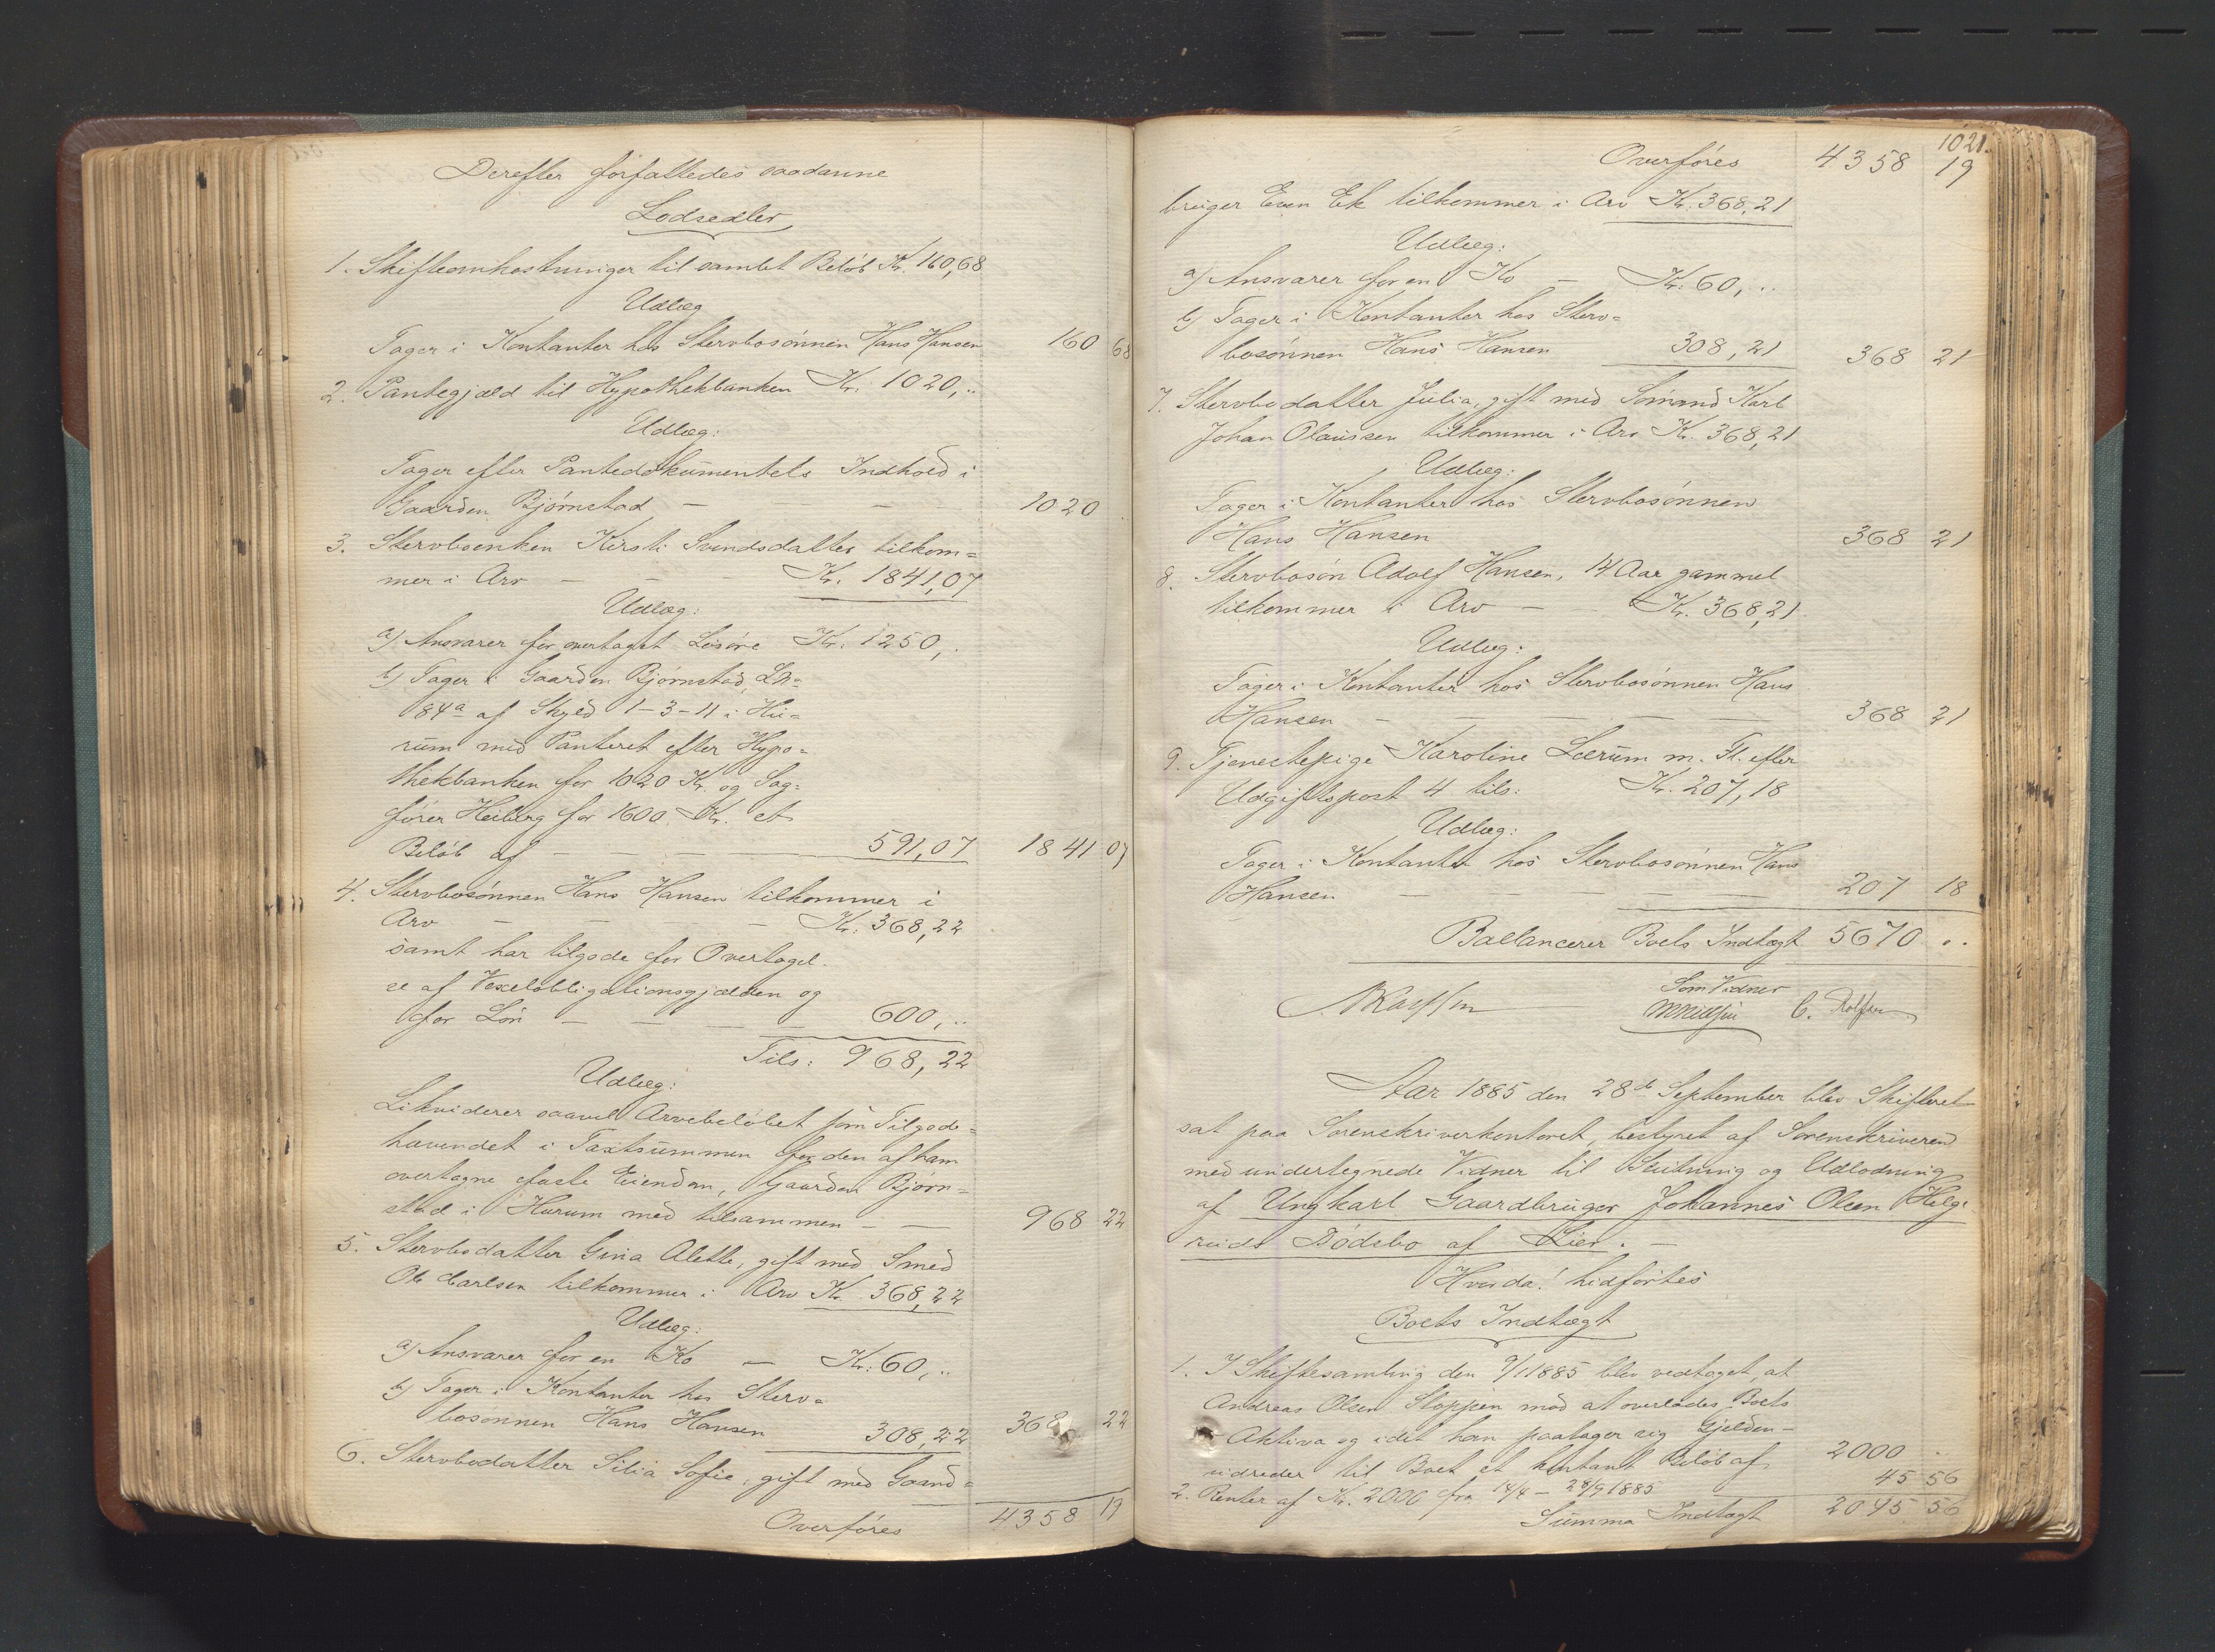 Derefter forfattedes saadanne
Lodsedler
1. Skifteomkostninger til samlet Beløb Kr. 160,68
Udlæg
Tager i Kontanter hos Stervbosønnen Hans Hansen 160 68
2. Pantegjæld til Hypothekbanken Kr. 1020,..
Udlæg:
Tager efter Pantedokumentets Indhold i
Gaarden Bjørnstad — — 1020 .
3. Stervboenken Kirsti Svendsdatter tilkom=
mer i Arv — — — Kr. 1841,07
Udlæg:
a) Ansvarer for overtaget Løsøre Kr. 1250,.
b) Tager i Gaarden Bjørnstad, LN=
84a af Skyld 1-3-11 i Hu=
rum med Panteret efter Hypo=
thekbanken for 1020 Kr. og Sag=
fører Heiberg for 1600 Kr. et
Beløb af — — — 591,07 1841 07
4. Stervbosønnen Hans Hansen tilkommer i
Arv — — — Kr. 368,22
samt har tilgode for Overtagel-
se af Vexelobligationsgjælden og
for Løn — — — — 600,..
Tils: 968,22
Udlæg:
Likviderer saavel Arvebeløbet som Tilgode=
havendet i Taxtsummen for den af ham
overtagne faste Eiendom, Gaarden Bjørn=
stad i Hurum med tilsammen — — 968 22
5. Stervbodatter Gina Alette, gift med Smed
Ole Carlsen tilkommer i Arv Kr. 368,22
Udlæg:
a) Ansvarer for en Ko — Kr. 60,..
b) Tager i Kontanter hos Sterv=
bosønnen Hans Hansen 308,22 368 22
6. Stervbodatter Silia Sofie, gift med Gaard=
Overføres 4358 19
1021.
Overføres 4358 19
bruger Even Ek tilkommer i Arv Kr. 368,21
Udlæg:
a) Ansvarer for en Ko — Kr. 60,..
b) Tager i Kontanter hos Sterv=
bosønnen Hans Hansen 308,21 368 21
7. Stervbodatter Julia, gift med Sømand Karl
Johan Olaussen tilkommer i Arv Kr. 368,21
Udlæg:
Tager i Kontanter hos Stervbosønnen
Hans Hansen 368 21
8. Stervbosøn Adolf Hansen, 14 Aar gammel
tilkommer i Arv — Kr. 368,21
Udlæg:
Tager i Kontanter hos Stervbosønnen Hans
Hansen — — — — — 368 21
9. Tjenestepige Karoline Lærum m. Fl. efter
Udgiftspost 4 tils: Kr. 207,18
Udlæg:
Tager i Kontanter hos Stervbosønnen Hans
Hansen — — — — — 207 18
Ballancerer Boets Indtægt 5670 ..
Som Vidner
C. Rolfsen
Aar 1885 den 28de September blev Skifteret
sat paa Sorenskriverkontoret, bestyret af Sorenskriveren
med undertegnede Vidner til Slutning og Udlodning
af Ungkarl Gaardbruger Johannes Olsen Helge
ruds Dødsbo af Lier. —
Hvorda! hidførtes
Boets Indtægt
1. I Skiftesamling den 9/1 1885 blev vedtaget, at
Andreas Olsen Stoppen mod at overlades Boets
Aktiva og idet han paatager sig Gjælden —
udreder til Boet et kontant Beløb af 2000 ..
2. Renter af Kr. 2000 fra 14/4 — 28/9 1885 45 56
Summa Indtægt 2045 56